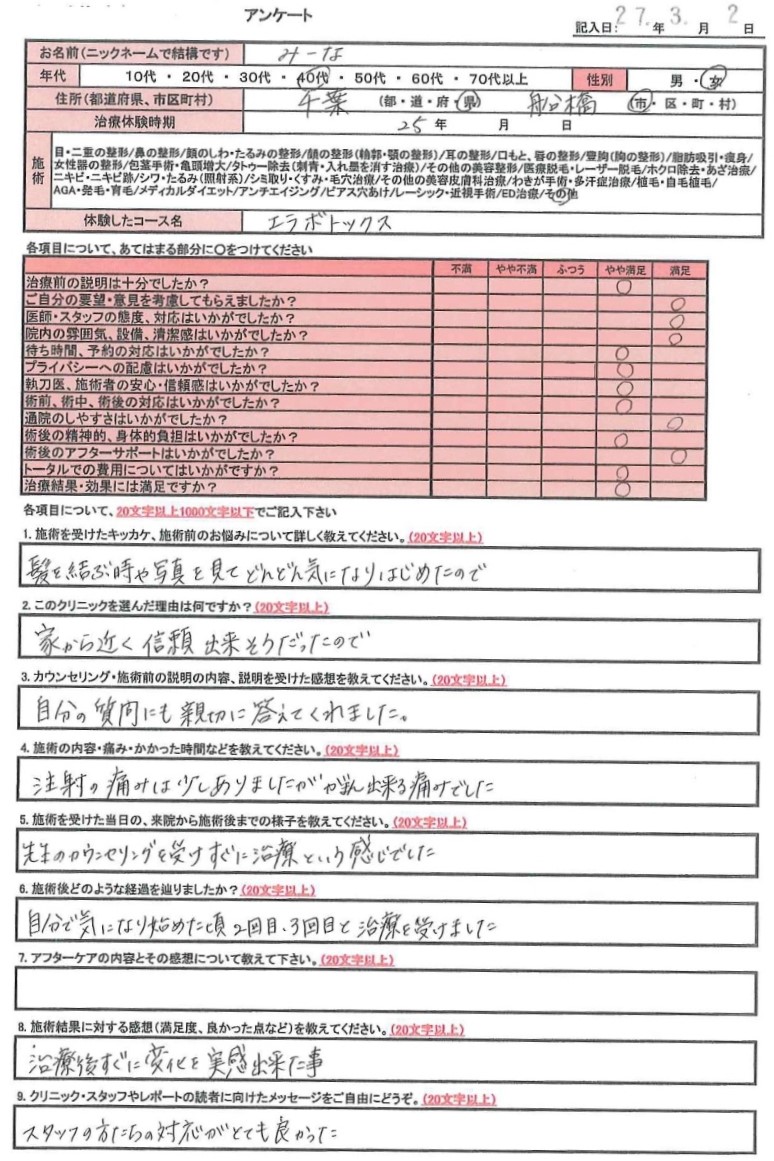 アンケート
記入日: 27.年 3.月 2日
お名前(ニックネームで結構です) みーな
年代 10代 ・ 20代 ・ 30代 ・ 40代 ・ 50代 ・ 60代 ・ 70代以上 性別 男 ・ 女
住所(都道府県、市区町村) 千葉 (都・道・府・県) 船橋 (市・区・町・村)
治療体験時期 25年 月 日
施術
目・二重の整形/鼻の整形/顔のしわ・たるみの整形/顔の整形(輪郭・顎の整形)/耳の整形/口もと、唇の整形/豊胸(胸の整形)/脂肪吸引・痩身/
女性器の整形/包茎手術・亀頭増大/タトゥー除去(刺青・入れ墨を消す治療)/その他の美容整形/医療脱毛・レーザー脱毛/ホクロ除去・あざ治療/
ニキビ・ニキビ跡/シワ・たるみ(照射系)/シミ取り・くすみ・毛穴治療/その他の美容皮膚科治療/わきが手術・多汗症治療/植毛・自毛植毛/
AGA・発毛・育毛/メディカルダイエット/アンチエイジング/ピアス穴あけ/レーシック・近視手術/ED治療/その他
体験したコース名 エラボトックス
各項目について、あてはまる部分に〇をつけてください
不満 やや不満 ふつう やや満足 満足
治療前の説明は十分でしたか? ○
ご自分の要望・意見を考慮してもらえましたか? ○
医師・スタッフの態度、対応はいかがでしたか? ○
院内の雰囲気、設備、清潔感はいかがでしたか? ○
待ち時間、予約の対応はいかがでしたか? ○
プライバシーへの配慮はいかがでしたか? ○
執刀医、施術者の安心・信頼感はいかがでしたか? ○
術前、術中、術後の対応はいかがでしたか? ○
通院のしやすさはいかがでしたか? ○
術後の精神的、身体的負担はいかがでしたか? ○
術後のアフターサポートはいかがでしたか? ○
トータルでの費用についてはいかがですか? ○
治療結果・効果には満足ですか? ○
各項目について、20文字以上1000文字以下でご記入下さい
1. 施術を受けたキッカケ、施術前のお悩みについて詳しく教えてください。(20文字以上)
髪を結ぶ時や写真を見てどんどん気になりはじめたので
2. このクリニックを選んだ理由は何ですか?(20文字以上)
家から近く信頼出来そうだったので
3. カウンセリング・施術前の説明の内容、説明を受けた感想を教えてください。(20文字以上)
自分の質問にも親切に答えてくれました。
4. 施術の内容・痛み・かかった時間などを教えてください。(20文字以上)
注射の痛みは少しありましたががまん出来る痛みでした
5. 施術を受けた当日の、来院から施術後までの様子を教えてください。(20文字以上)
先生のカウンセリングを受けすぐに治療という感じでした
6. 施術後どのような経過を辿りましたか?(20文字以上)
自分で気になり始めた頃2回目、3回目と治療を受けました
7. アフターケアの内容とその感想について教えて下さい。(20文字以上)
8. 施術結果に対する感想(満足度、良かった点など)を教えてください。(20文字以上)
治療後すぐに変化を実感出来た事
9. クリニック・スタッフやレポートの読者に向けたメッセージをご自由にどうぞ。(20文字以上)
スタッフの方たちの対応がとても良かった